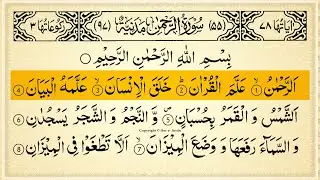 اٰيَاتُهَا ٧٨ (٥٥) سُوْرَةُ الرَّحْمٰنِ مَدَنِيَّةٌ (٩٧) رُكُوْعَاتُهَا ٣
بِسْمِ اللّٰهِ الرَّحْمٰنِ الرَّحِيْمِ
اَلرَّحْمٰنُ 1 عَلَّمَ الْقُرْاٰنَ 2 خَلَقَ الْاِنْسَانَ 3 عَلَّمَهُ الْبَيَانَ 4
اَلشَّمْسُ وَ الْقَمَرُ بِحُسْبَانٍ 5 وَّ النَّجْمُ وَ الشَّجَرُ يَسْجُدٰنِ 6
وَ السَّمَآءَ رَفَعَهَا وَ وَضَعَ الْمِيْزَانَ 7 اَلَّا تَطْغَوْا فِى الْمِيْزَانِ 8